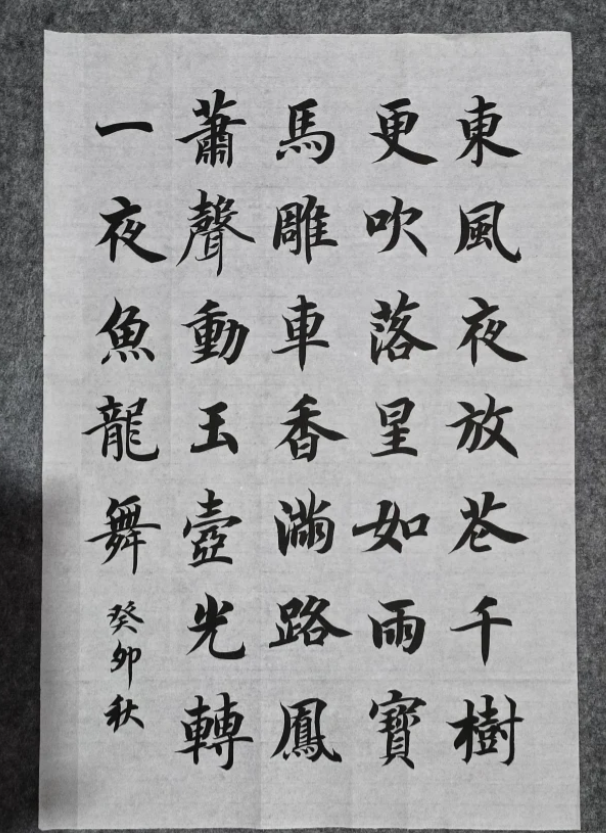 東風夜放花千樹
更吹落星如雨寶
馬雕車香滿路鳳
蕭聲動玉壺光轉
一夜魚龍舞
癸卯秋